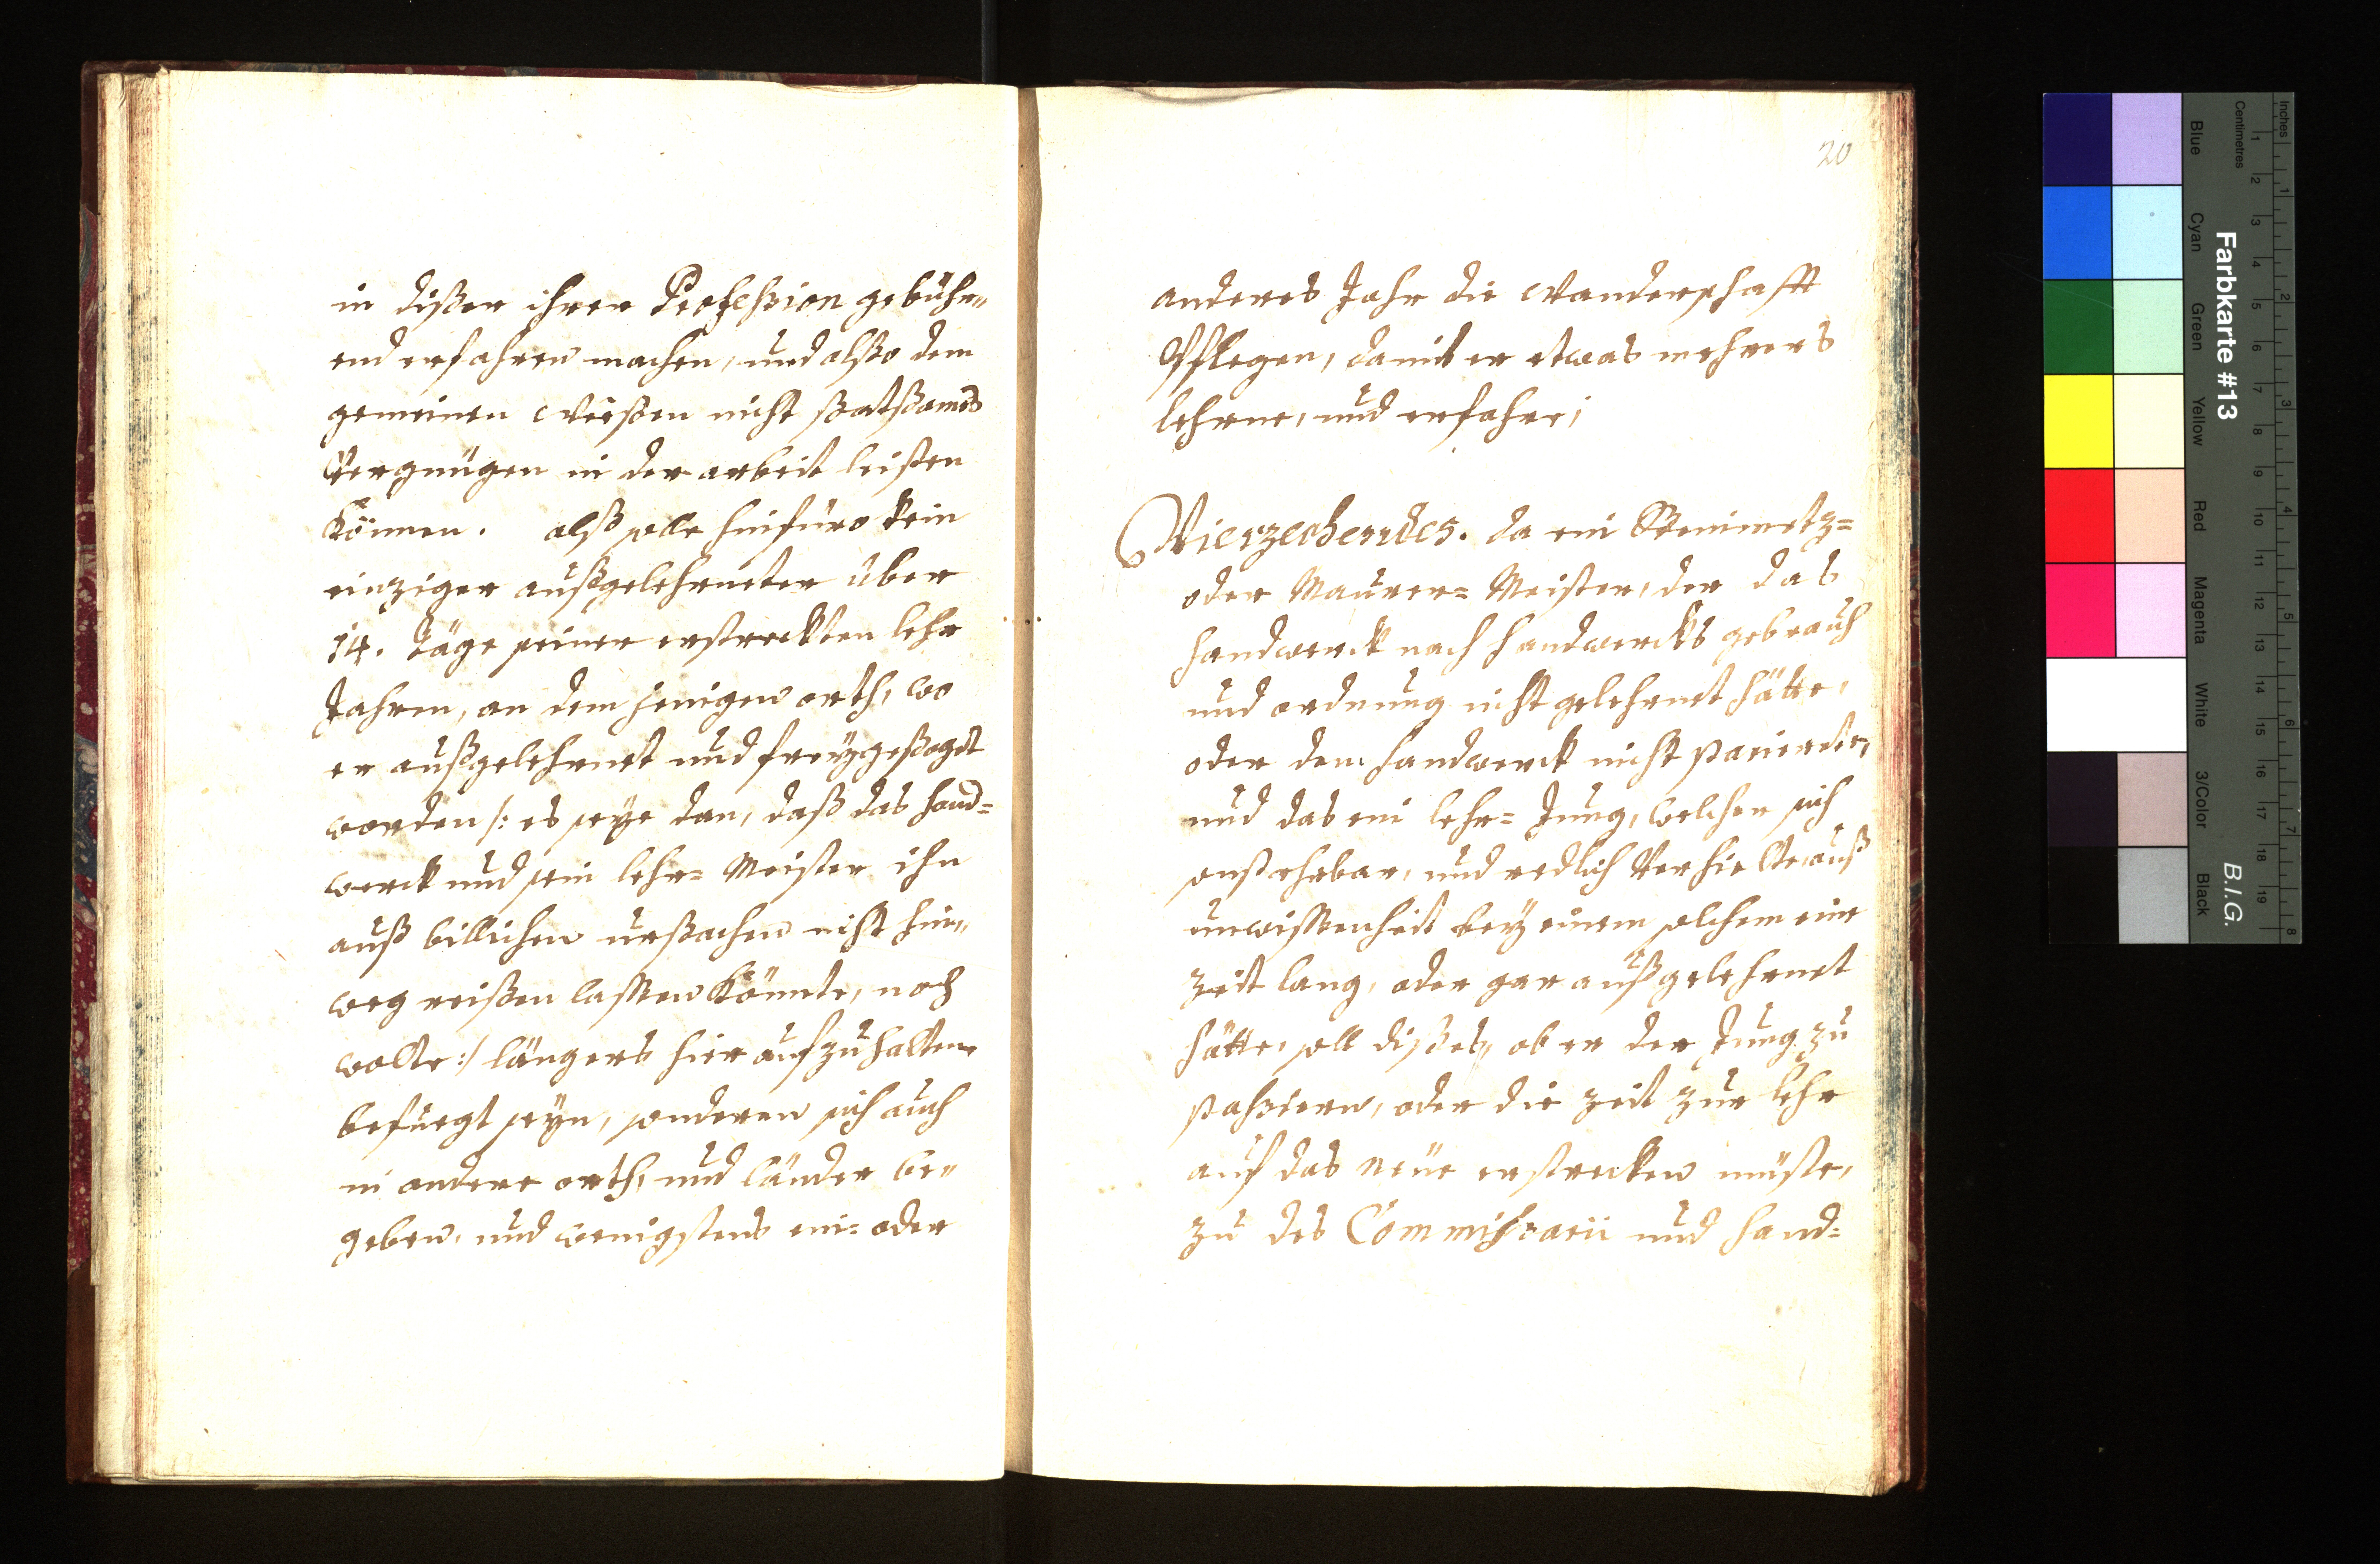 in dißer ihrer Profeßion gebühr„
end erfahren machen, und alßo dem
gemeinen Weeßen nicht ßattßames
Vergnügen in der arbeit leisten
Können. alß solle hinfüro kein
einziger außgelehrneter über
14. Täge seiner erstreckten lehr
Jahren, an dem jenigen orth, wo
er außgelehrnet und freygeßagt
worden /: es seye dan, daß das hand=
werck und sein lehr= Meister ihn
auß billichen urßachen nicht hin„
weg reißen lassen Könnte, noch
wolte :/ längers hier aufzuhalten
befuegt seyn, sonderen sich auch
in andere orth, und länder be„
geben, und wenigstens ein= oder
20
anderes Jahr die Wanderschafft
Pflegen, damit er etwas mehrers
lehrne, und erfahre;
Vierzechendes. da ein Steinmetz=
oder Maurer= Meister, der das
handwerck nach handwercks gebrauch
und ordnung nicht gelehrnet hätte,
oder dem handwerck nicht parierte,
und das ein lehr= Jung, welcher sich
onst ehrbar, und redlich Verhielte, auß
unwissenheit bey einem solchem eine
Zeit lang, oder gar außgelehrnet
hätte, soll dißes„ ob er der Jung zu
paßieren, oder die Zeit zur lehr
auf das neüe erstrecken müste,
zu des Commißarii und hand=
Farbkarte #13
B.I.G.
Inches
Centimetres
Blue
Cyan
Green
Yellow
Red
Magenta
White
3/Color
Black